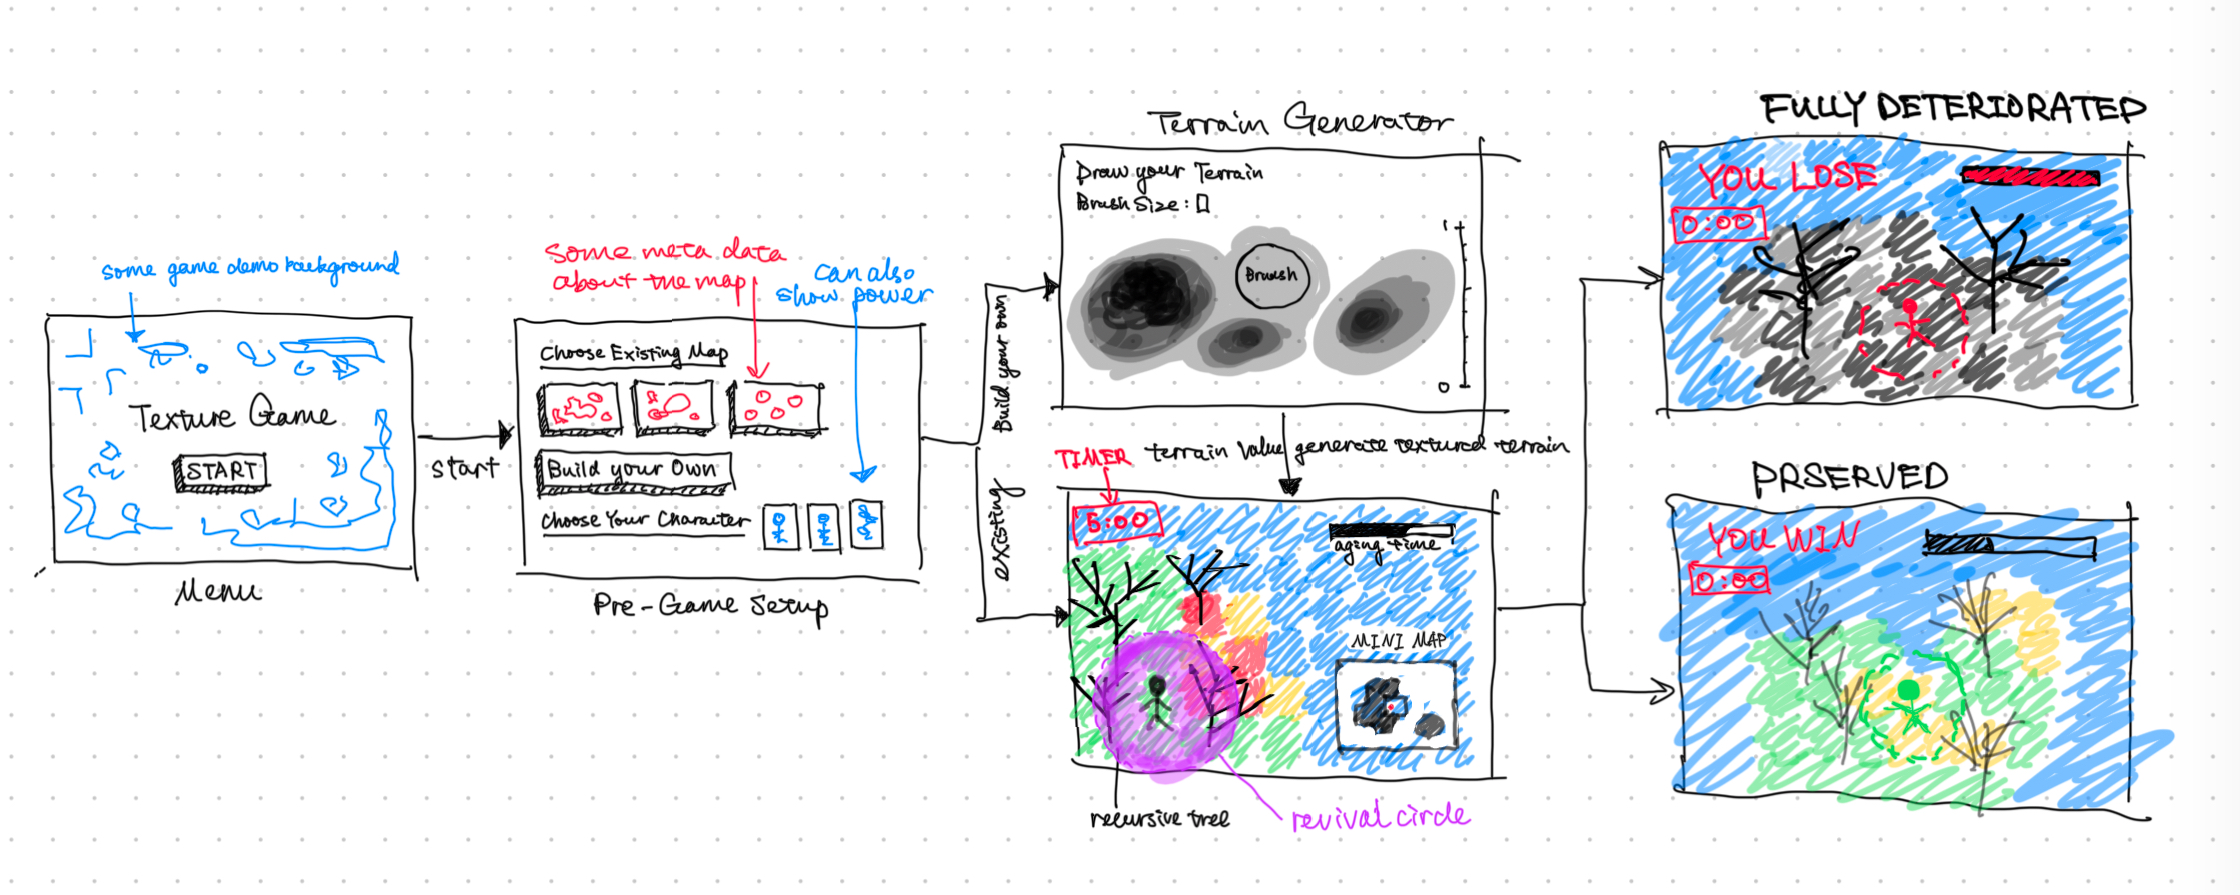 some game demo background
Texture Game
START
Menu
start
some meta data
about the map
can also
show power
Choose Existing Map
Build your Own
Choose Your Character
Pre-Game Setup
Build your own
existing
Terrain Generator
Draw your Terrain
Brush Size:
Brush
1
0
terrain value generate textured terrain
TIMER
5:00
aging time
MINI MAP
recursive tree
revival circle
FULLY DETERIORATED
YOU LOSE
0:00
PRSERVED
YOU WIN
0:00